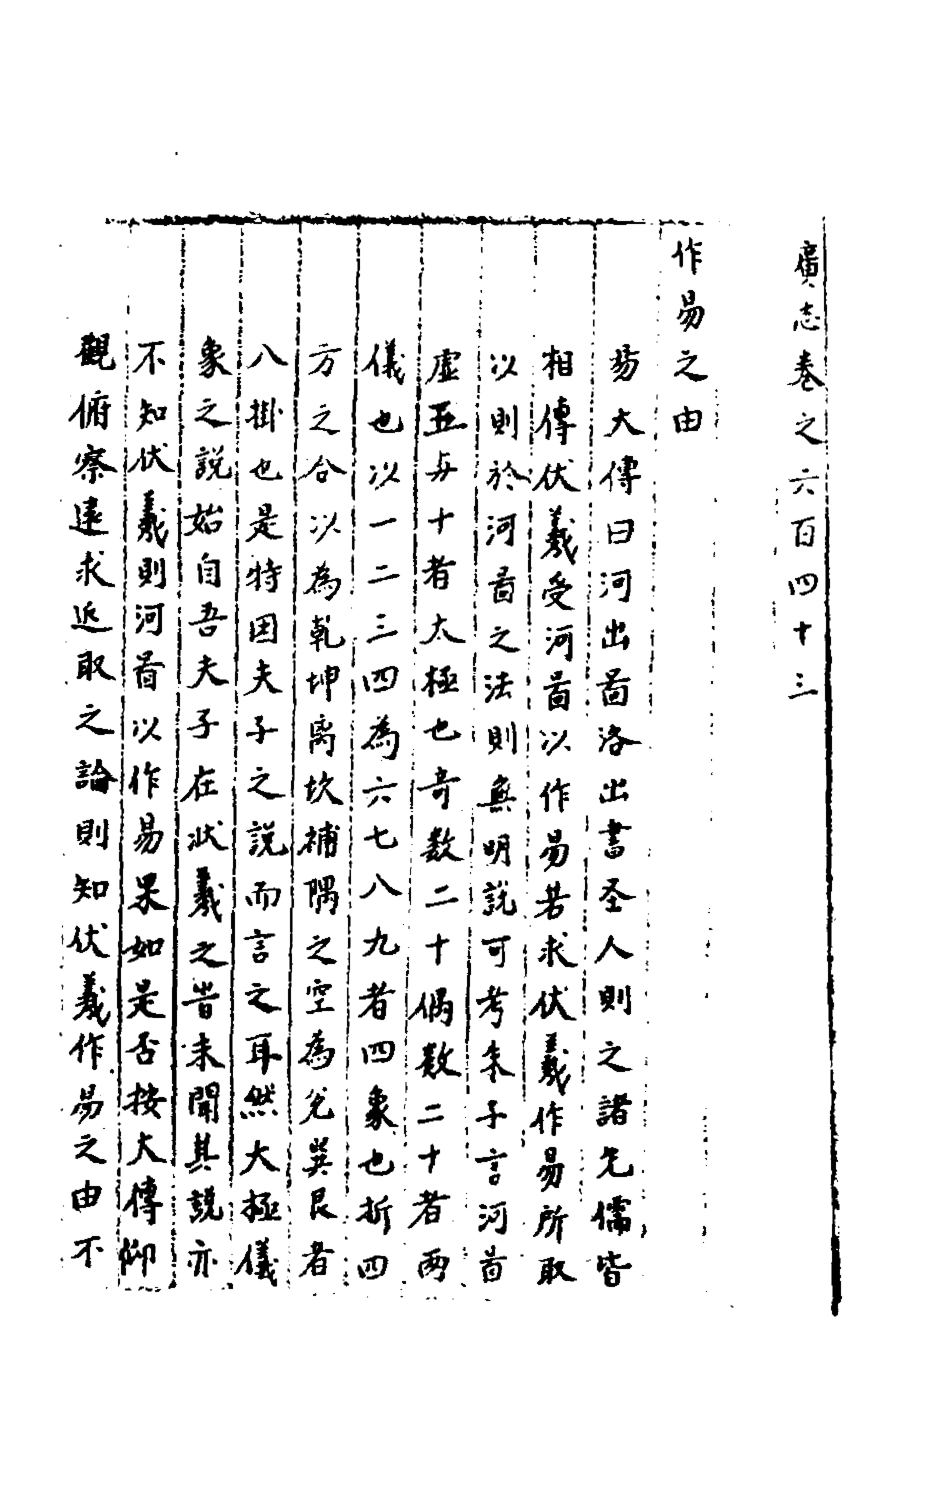 廣志卷之六百四十三
作易之由
易大傳曰河出啚洛出書圣人則之諸先儒皆
相傳伏羲受河啚以作易若求伏羲作易所取
以則於河啚之法則無明說可考朱子言河啚
虛五与十者太極也奇数二十偶数二十者两
儀也以一二三四為六七八九者四象也析四
方之合以為乾坤离坎補隅之空為兊巽艮者
八掛也是特因夫子之說而言之耳然大極儀
象之說始自吾夫子在狀羲之昔未聞其說亦
不知伏羲則河啚以作易果如是否按大傳仰
觀俯察遠求近取之論則知伏羲作易之由不